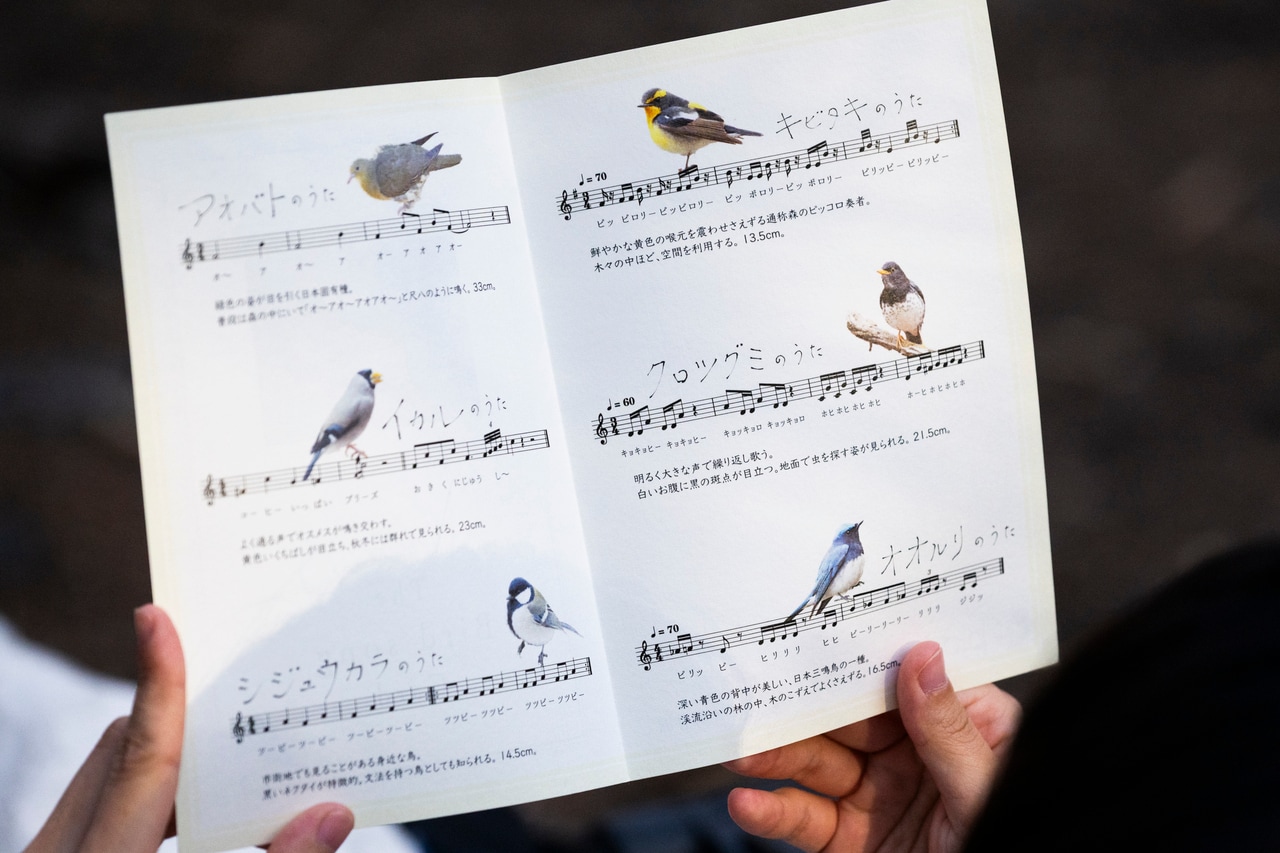 アオバトのうた
オ〜 ア オ〜 ア オ ア ア オー
緑色の姿が目を引く日本固有種。
普段は森の中にいて「オ〜アオ〜アオアオ〜」と尺八のように鳴く。33cm。
イカルのうた
コー ヒー いっ ぱい プリーズ お き く にじゅう し〜
よく通る声でオスメスが鳴き交わす。
黄色いくちばしが目立ち、秋冬には群れで見られる。23cm。
シジュウカラのうた
ツーピーツーピー ツーピーツーピー ツツピーツツピー ツツピーツツピー
市街地でも見ることがある身近な鳥。
黒いネクタイが特徴的。文法を持つ鳥としても知られる。14.5cm。
キビタキのうた
♩= 70
ピッ ピロリーピッピロリー ピッ ポロリーピッ ポロリー ピリッピー ピリッピー
鮮やかな黄色の喉元を震わせさえずる通称森のピッコロ奏者。
木々の中ほど、空間を利用する。13.5cm。
クロツグミのうた
♩= 60
キョキョヒー キョキョヒー キョッキョロ キョッキョロ ホヒホヒ ホヒ ホヒ ホーヒ ホヒホヒホ
明るく大きな声で繰り返し歌う。
白いお腹に黒の斑点が目立つ。地面で虫を探す姿が見られる。21.5cm。
オオルリのうた
♩= 70
ピリッ ピー ヒリリリ ヒヒ ピーリーリーリー リリリ ジジッ
深い青色の背中が美しい、日本三鳴鳥の一種。
渓流沿いの林の中、木のこずえでよくさえずる。16.5cm。